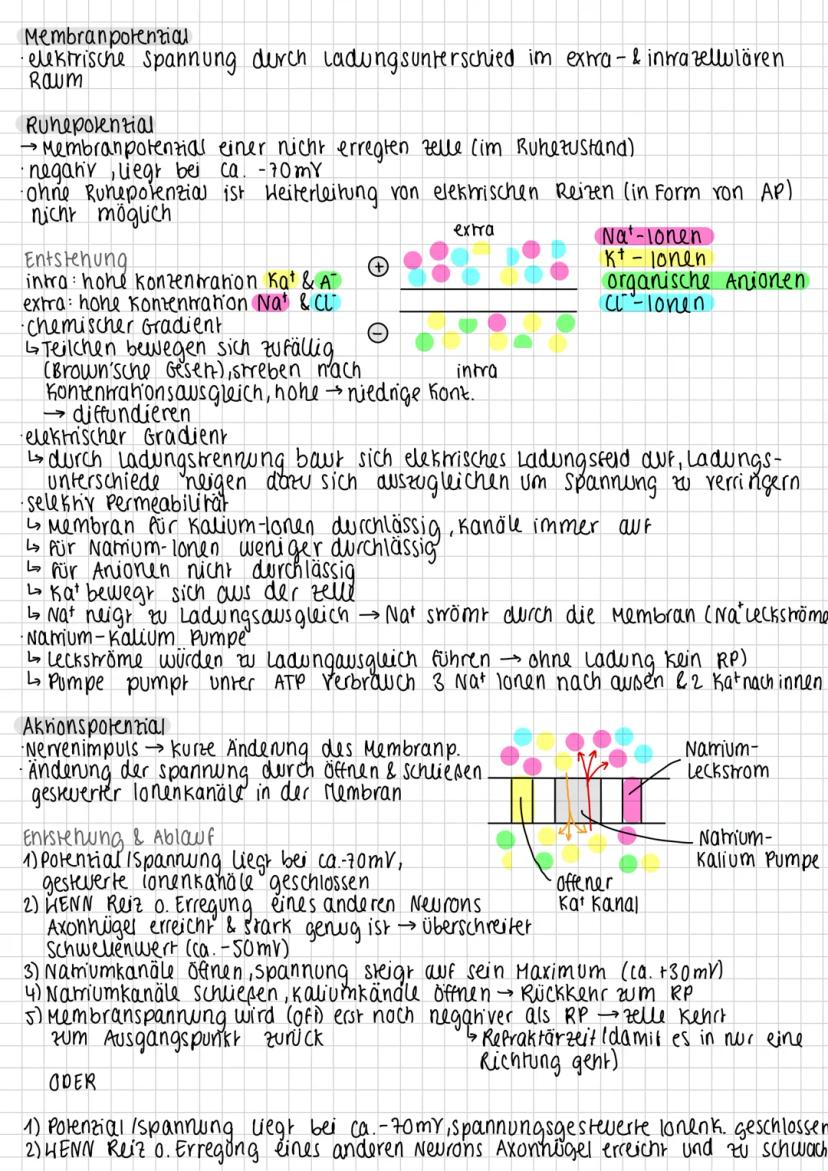 Membranpotenzial
· elektrische Spannung durch Ladungsunterschied im extra- & intrazellulären
Raum
Ruhepotenzial
→ Membranpotenzial einer nicht erregten Zelle (im Ruhezustand)
· negativ, liegt bei ca. -70mV
· ohne Ruhepotenzial ist Weiterleitung von elektrischen Reizen (in Form von AP)
nicht möglich
Entstehung
intra: hohe Konzentration Ka⁺ & A⁻
extra: hohe Konzentration Na⁺ & Cl⁻
extra
+
−
intra
Na⁺-Ionen
K⁺-Ionen
organische Anionen
Cl⁻-Ionen
· chemischer Gradient
↳ Teilchen bewegen sich zufällig
(Brown'sche Gesetz), streben nach
Konzentrationsausgleich, hohe → niedrige Konz.
→ diffundieren
· elektrischer Gradient
↳ durch Ladungstrennung baut sich elektrisches Ladungsfeld auf, Ladungs-
unterschiede neigen dazu sich auszugleichen um Spannung zu verringern
· selektiv Permeabilität
↳ Membran für Kalium-Ionen durchlässig, Kanäle immer auf
↳ für Natrium-Ionen weniger durchlässig
↳ für Anionen nicht durchlässig
↳ Ka⁺ bewegt sich aus der Zelle
↳ Na⁺ neigt zu Ladungsausgleich → Na⁺ strömt durch die Membran (Na⁺Leckströme
· Natrium-Kalium Pumpe
↳ Leckströme würden zu Ladungausgleich führen → ohne Ladung kein RP)
↳ Pumpe pumpt unter ATP Verbrauch 3 Na⁺ Ionen nach außen & 2 Ka⁺ nach innen
Aktionspotenzial
· Nervenimpuls → kurze Änderung des Membranp.
· Änderung der Spannung durch Öffnen & Schließen
gesteuerter Ionenkanäle in der Membran
Natrium-
Leckstrom
Natrium-
Kalium Pumpe
offener
Ka⁺ Kanal
Entstehung & Ablauf
1) Potential/Spannung liegt bei ca.-70mV,
gesteuerte Ionenkanäle geschlossen
2) WENN Reiz o. Erregung eines anderen Neurons
Axonhügel erreicht & stark genug ist → überschreitet
Schwellenwert (ca. -50mV)
3) Natriumkanäle öffnen, Spannung steigt auf sein Maximum (ca. +30mV)
4) Natriumkanäle schließen, Kaliumkänäle öffnen → Rückkehr zum RP
5) Membranspannung wird (oft) erst noch negativer als RP → Zelle kehrt
zum Ausgangspunkt zurück
↳ Refraktärzeit (damit es in nur eine
Richtung geht)
ODER
1) Potenzial/Spannung liegt bei ca.-70mV, spannungsgesteuerte Ionenk. geschlossen
2) WENN Reiz o. Erregung eines anderen Neurons Axonhügel erreicht und zu schwach